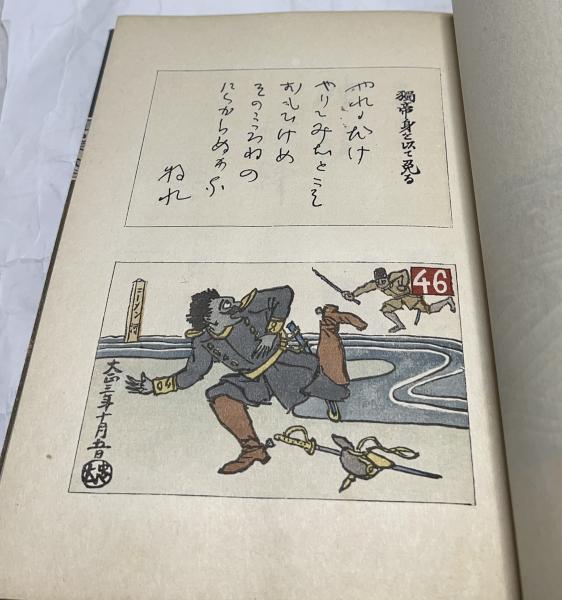 獨帝身を以て免る
やれるだけ
やりてみむとこそ
おもひけめ
そのこころねの
にくからぬかな
46
ニーメン河
大正三年十月五日